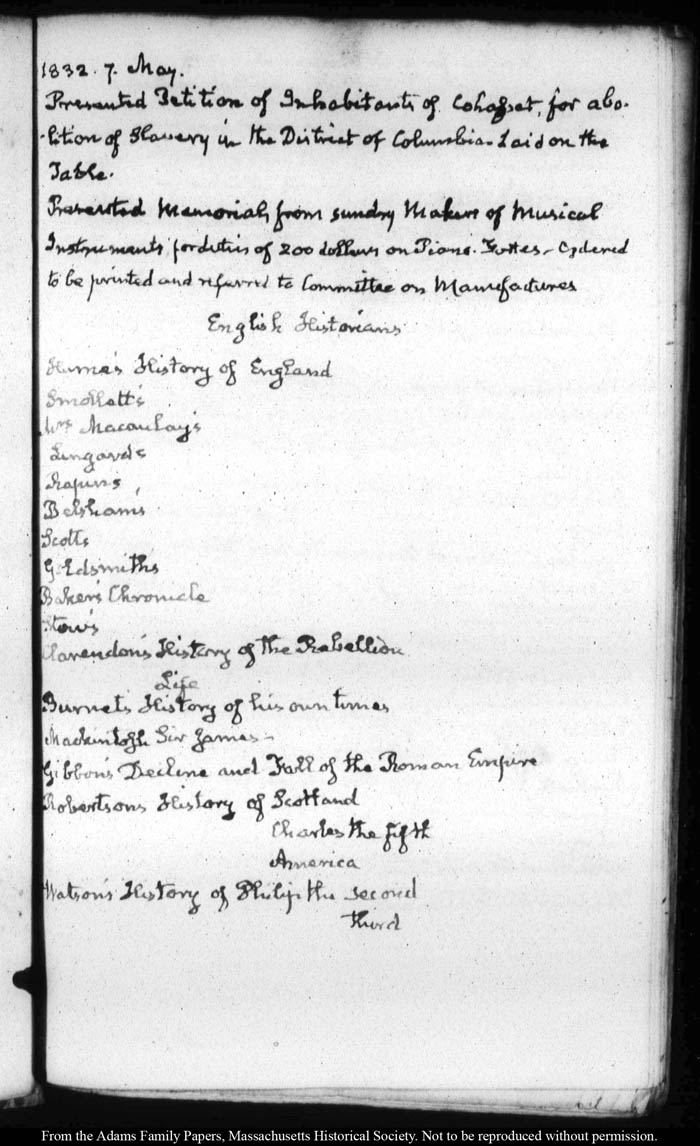 1832. 7. May.
Presented Petition of Inhabitants of Cohasset, for abo-
-lition of Slavery in the District of Columbia. Laid on the
Table.
Presented Memorial, from sundry Makers of Musical
Instruments, for duties of 200 dollars on Piano-Fortes. Ordered
to be printed and referred to Committee on Manufactures
English Historians
Hume's History of England
Smollett's
Mrs Macaulay's
Lingard's
Rapin's
Belsham's
Scott's
Goldsmiths
Baker's Chronicle
Stow's
Clarendon's History of the Rebellion
Life
Burnet's History of his own times
Mackintosh Sir James-
Gibbon's Decline and Fall of the Roman Empire
Robertsons History of Scotland
Charles the fifth
America
Watson's History of Philip the second
third
From the Adams Family Papers, Massachusetts Historical Society. Not to be reproduced without permission.